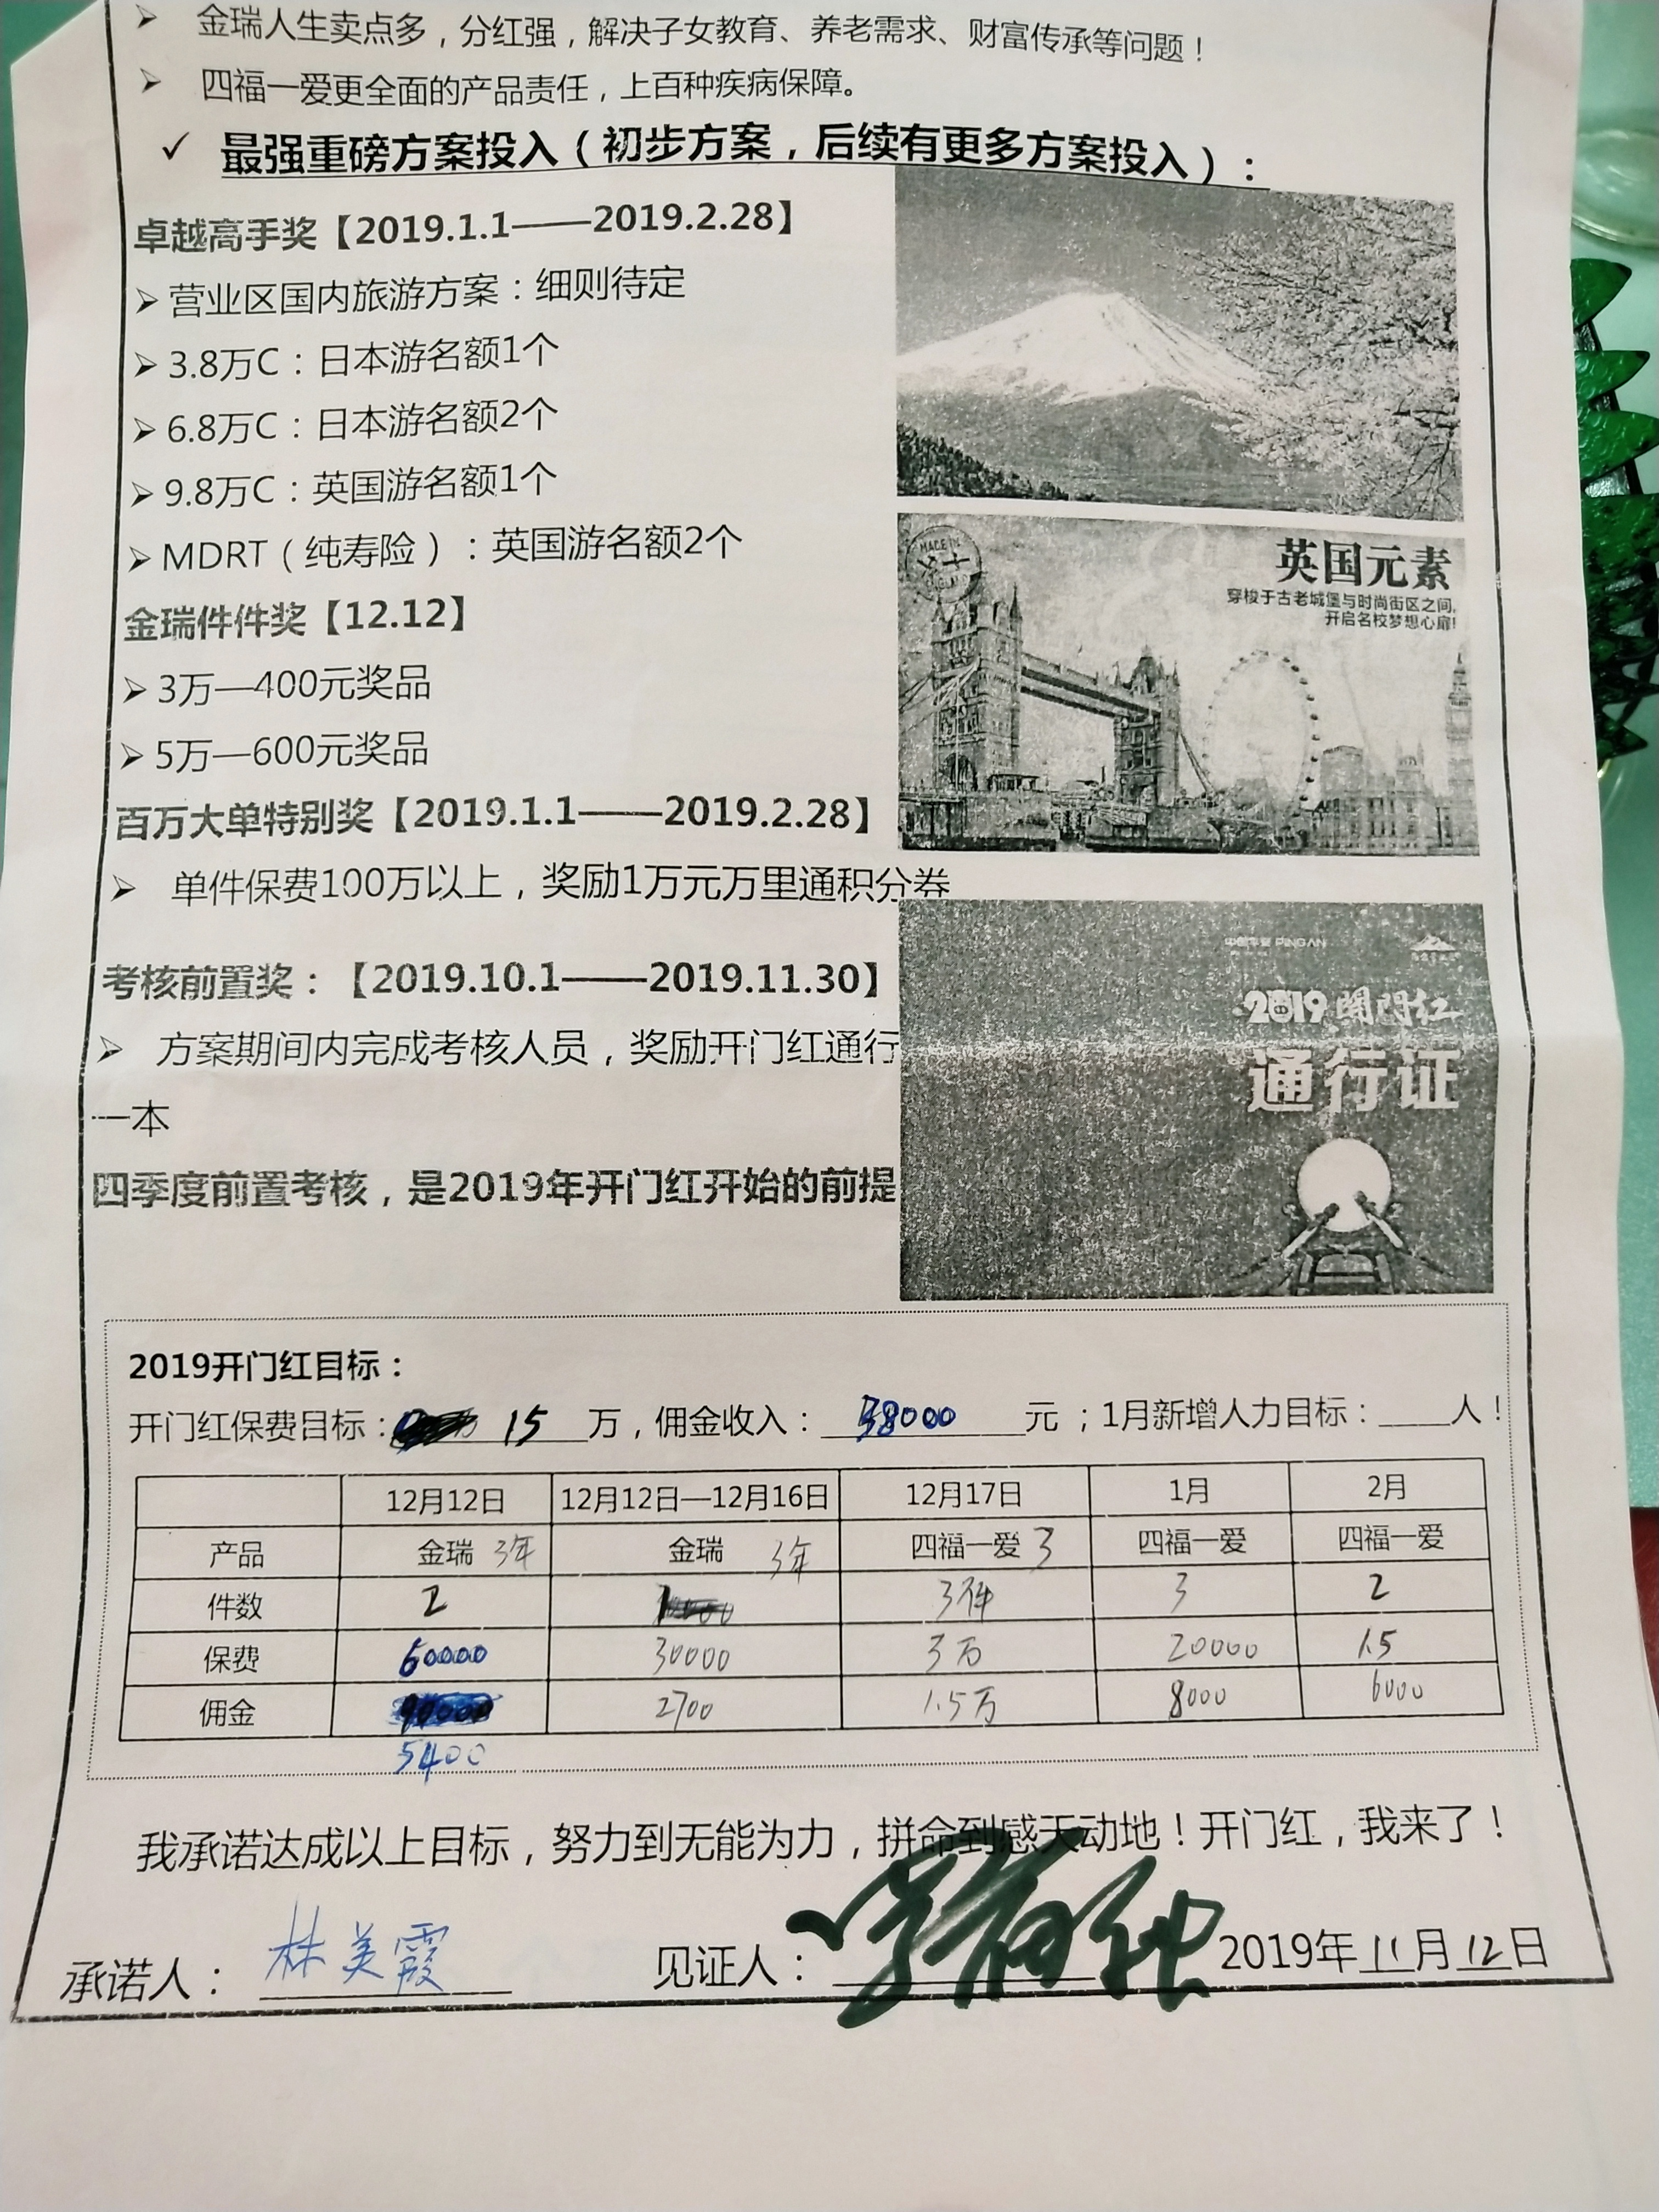 ➢ 金瑞人生卖点多，分红强，解决子女教育、养老需求、财富传承等问题！
➢ 四福一爱更全面的产品责任，上百种疾病保障。
✓ 最强重磅方案投入（初步方案，后续有更多方案投入）：
卓越高手奖【2019.1.1——2019.2.28】
➢ 营业区国内旅游方案：细则待定
➢ 3.8万C：日本游名额1个
➢ 6.8万C：日本游名额2个
➢ 9.8万C：英国游名额1个
➢ MDRT（纯寿险）：英国游名额2个
MADE IN
英国元素
穿梭于古老城堡与时尚街区之间,
开启名校梦想心扉!
金瑞件件奖【12.12】
➢ 3万—400元奖品
➢ 5万—600元奖品
百万大单特别奖【2019.1.1——2019.2.28】
➢ 单件保费100万以上，奖励1万元万里通积分券
考核前置奖：【2019.10.1——2019.11.30】
➢ 方案期间内完成考核人员，奖励开门红通行
一本
四季度前置考核，是2019年开门红开始的前提
中国平安 PINGAN
2019 開門红
通行证
2019开门红目标：
开门红保费目标： 15 万，佣金收入： 38000 元；1月新增人力目标：____人！
12月12日 12月12日—12月16日 12月17日 1月 2月
产品 金瑞 3年 金瑞 3年 四福一爱 3 四福一爱 四福一爱
件数 2 1 3件 3 2
保费 60000 30000 3万 20000 1.5
佣金 2700 1.5万 8000 6000
5400
我承诺达成以上目标，努力到无能为力，拼命到感天动地！开门红，我来了！
承诺人： 林美霞 见证人： 2019年11月12日